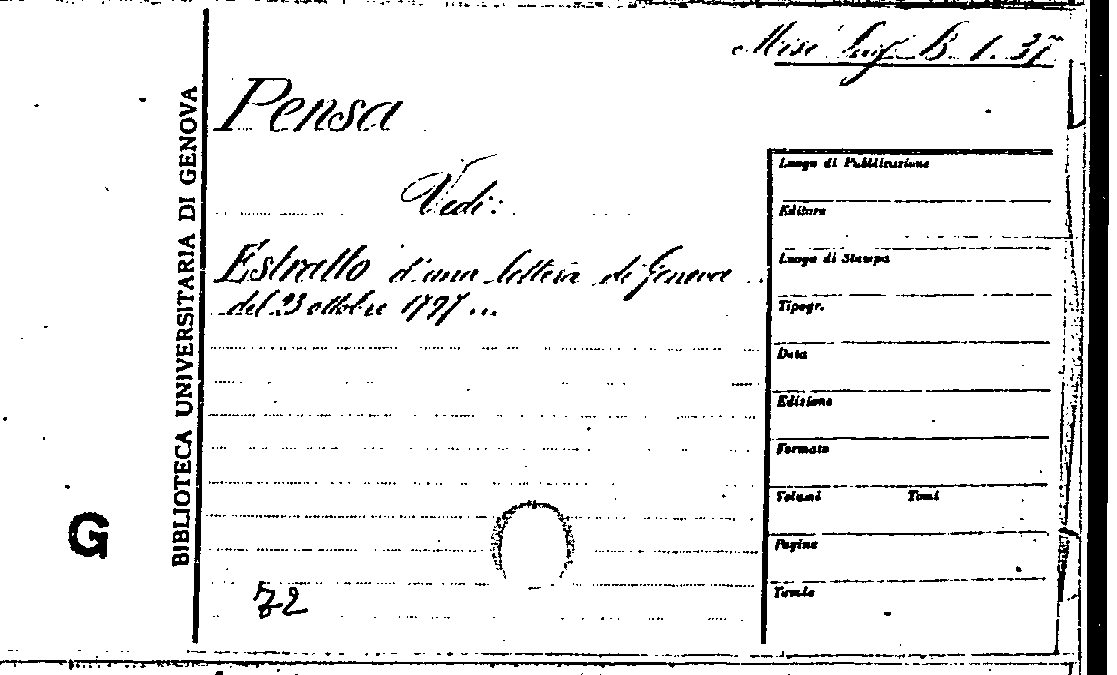 B. 1. 37
Pensa
Vedi:
Estratto d'una lettera di Genova
del 23 ottobre 1797...
BIBLIOTECA UNIVERSITARIA DI GENOVA
G
Luogo di Pubblicazione
Editore
Luogo di Stampa
Tipogr.
Data
Edizione
Formato
Volumi Tomi
Pagine
Tavole